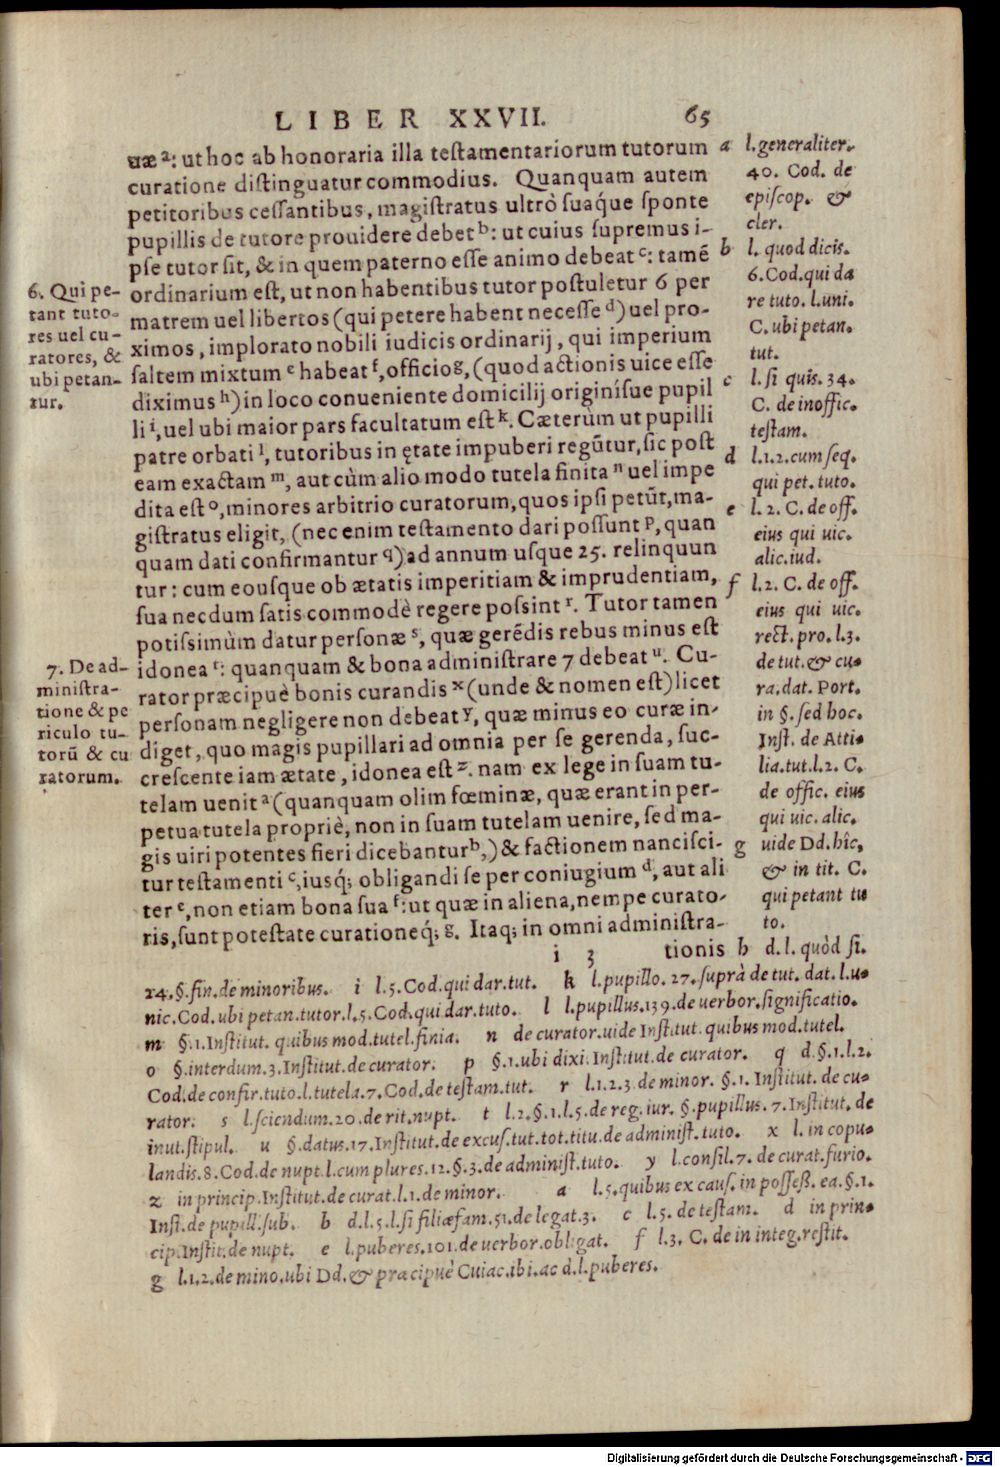 LIBER XXVII. 65
uæ ᵃ: ut hoc ab honoraria illa testamentariorum tutorum
curatione distinguatur commodius. Quanquam autem
petitoribus cessantibus, magistratus ultrò suaque sponte
pupillis de tutore prouidere debet ᵇ: ut cuius supremus i-
pse tutor sit, & in quem paterno esse animo debeat ᶜ: tamē
ordinarium est, ut non habentibus tutor postuletur 6 per
matrem uel libertos (qui petere habent necesse ᵈ) uel pro-
ximos, implorato nobili iudicis ordinarij, qui imperium
saltem mixtum ᵉ habeat ᶠ, officio g, (quod actionis uice esse
diximus ʰ) in loco conueniente domicilij originisue pupil
li ⁱ, uel ubi maior pars facultatum est ᵏ. Cæterùm ut pupilli
patre orbati ˡ, tutoribus in ętate impuberi regūtur, sic post
eam exactam ᵐ, aut cùm alio modo tutela finita ⁿ uel impe
dita est ᵒ, minores arbitrio curatorum, quos ipsi petūt, ma-
gistratus eligit, (nec enim testamento dari possunt ᵖ, quan
quam dati confirmantur q) ad annum usque 25. relinquun
tur: cum eousque ob ætatis imperitiam & imprudentiam,
sua necdum satis commodè regere possint ʳ. Tutor tamen
potissimùm datur personæ ˢ, quæ gerēdis rebus minus est
idonea ᵗ: quanquam & bona administrare 7 debeat ᵘ. Cu-
rator præcipuè bonis curandis ˣ (unde & nomen est) licet
personam negligere non debeat ʸ, quæ minus eo curæ in-
diget, quo magis pupillari ad omnia per se gerenda, suc-
crescente iam ætate, idonea est ᶻ. nam ex lege in suam tu-
telam uenit ᵃ (quanquam olim fœminæ, quæ erant in per-
petua tutela propriè, non in suam tutelam uenire, sed ma-
gis uiri potentes fieri dicebantur ᵇ,) & factionem nancisci-
tur testamenti ᶜ, iusq́; obligandi se per coniugium ᵈ, aut ali
ter ᵉ, non etiam bona sua ᶠ: ut quæ in aliena, nempe curato-
ris, sunt potestate curationeq́; g. Itaq; in omni administra-
i 3 tionis
6. Qui pe-
tant tuto-
res uel cu-
ratores, &
ubi petan-
tur.
7. De ad-
ministra-
tione & pe
riculo tu-
torū & cu
ratorum.
a l. generaliter.
40. Cod. de
episcop. &
cler.
b l. quod dicis.
6. Cod. qui da
re tuto. l. uni.
C. ubi petan.
tut.
c l. si quis. 34.
C. de inoffic.
testam.
d l. 1. 2. cum seq.
qui pet. tuto.
e l. 2. C. de off.
eius qui uic.
alic. iud.
f l. 2. C. de off.
eius qui uic.
rect. pro. l. 3.
de tut. & cu-
ra. dat. Port.
in §. sed hoc.
Inst. de Atti-
lia. tut. l. 2. C.
de offic. eius
qui uic. alic.
g uide Dd. hîc,
& in tit. C.
qui petant tu
to.
h d. l. quòd si.
24. §. fin. de minoribus. i l. 5. Cod. qui dar. tut. k l. pupillo. 27. suprà de tut. dat. l. u-
nic. Cod. ubi petan. tutor. l. 5. Cod. qui dar. tuto. l l. pupillus. 139. de uerbor. significatio.
m §. 1. Institut. quibus mod. tutel. finia. n de curator. uide Institut. quibus mod. tutel.
o §. interdum. 3. Institut. de curator. p §. 1. ubi dixi. Institut. de curator. q d. §. 1. l. 2.
Cod. de confir. tuto. l. tutela. 7. Cod. de testam. tut. r l. 1. 2. 3. de minor. §. 1. Institut. de cu-
rator. s l. sciendum. 20. de rit. nupt. t l. 2. §. 1. l. 5. de reg. iur. §. pupillus. 7. Institut. de
inut. stipul. u §. datus. 17. Institut. de excus. tut. tot. titu. de administ. tuto. x l. in copu-
landis. 8. Cod. de nupt. l. cum plures. 12. §. 3. de administ. tuto. y l. consil. 7. de curat. furio.
z in princip. Institut. de curat. l. 1. de minor. a l. 5. quibus ex caus. in posseß. ea. §. 1.
Inst. de pupill. sub. b d. l. 5. l. si filiæfam. 51. de legat. 3. c l. 5. de testam. d in prin-
cip. Instit. de nupt. e l. puberes. 101. de uerbor. obligat. f l. 3. C. de in integ. restit.
g l. 1. 2. de mino. ubi Dd. & præcipuè Cuiac. ibi. ac d. l. puberes.
Digitalisierung gefördert durch die Deutsche Forschungsgemeinschaft - DFG